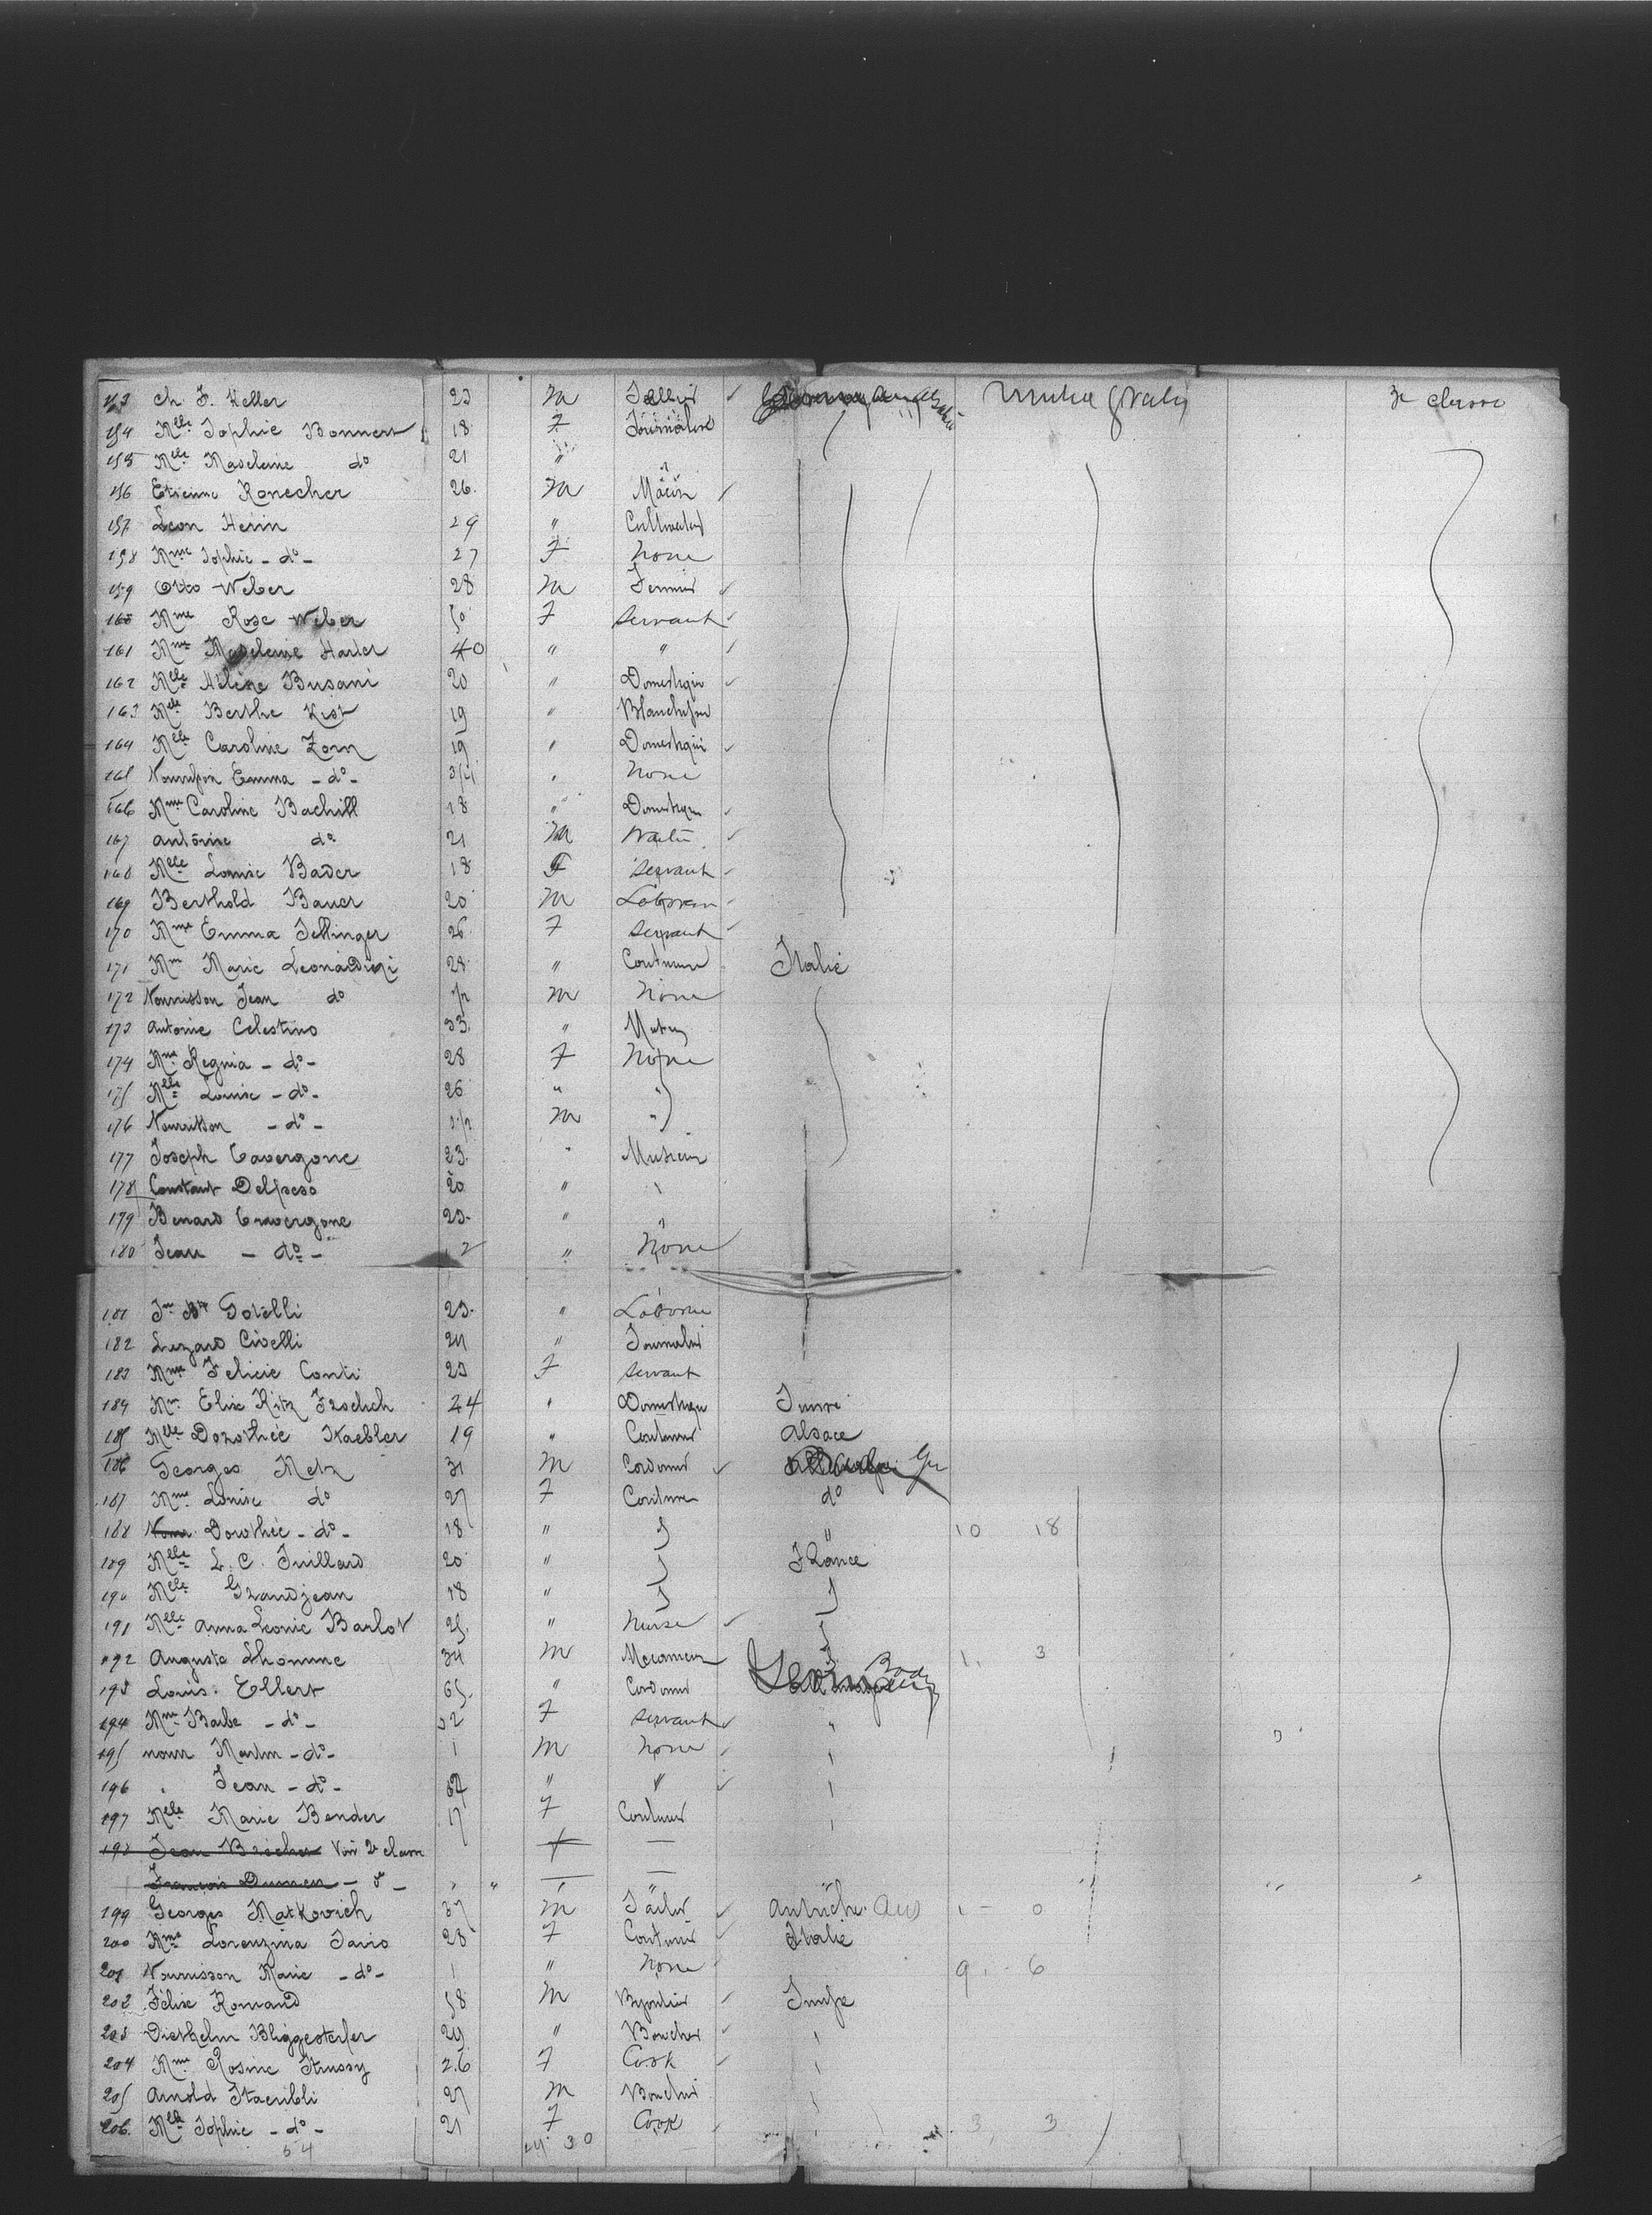 153 Ch. F. Keller 23 M Sellier 3e classe
154 Mlle Sophie Bonnert 18 F Journalière
155 Mlle Madeleine do 21 "
156 Etienne Ronecher 26 M Maçon
157 Leon Henin 29 " Cultivateur
158 Mme Sophie - do - 27 F None
159 Otto Weber 28 M Fermier
160 Mme Rose Weber 50 F Servant
161 Mme Madeleine Harter 40 " "
162 Mlle Hélène Busani 20 " Domestique
163 Mlle Berthe Kist 19 " Blanchisseuse
164 Mlle Caroline Zorn 19 " Domestique
165 Nourrisson Emma - do - " None
166 Mme Caroline Bachill 18 " Domestique
167 Antoine do 21 M
168 Mlle Louise Bader 18 F Servant
169 Berthold Bauer 20 M
170 Mme Emma Fellinger 26 F Servant
171 Mme Marie Leonardini 28 " Couturière Italie
172 Nourrisson Jean do M None
173 Antoine Celestino 33 "
174 Mme Regina - do - 28 F None
175 Mlle Louise - do - 26 " "
176 Nourrisson - do - M "
177 Joseph Cavergone 23 " Musicien
178 Constant Delpeso 20 "
179 Benard Cavergone 23 " "
180 Jean - do - 12 " None
181 Jn Bte Gotelli 23 "
182 Lazard Civelli 24 " Journalier
183 Mme Felicie Conti 23 F Servant
184 Mme Elise Ritz Froelich 24 " Domestique Suisse
185 Mlle Dorothée Staebler 19 " Couturière Alsace
186 Georges Metz 31 M Cordonnier Ger
187 Mme Louise do 27 F Couturière do
188 Dorothée - do - 18 " " 10 18
189 Mlle L. C. Juillard 20 " France
190 Mlle Grandjean 18 "
191 Mlle Anna Leonie Barlot 25 " Nurse
192 Auguste Lhomme 34 M Mecanicien 1. 3
193 Louis Ellert 65 " Cordonnier
194 Mme Barbe - do - 52 F Servant "
195 nourr Martin - do - 1 M None
196 " Jean - do - " "
197 Mlle Marie Bender 17 F Couturière
198 Jean Brecher Voir 2e classe
François - do -
199 Georges Matkovich 37 M Tailor Autriche Aus 1 - 0
200 Mme Lorenzina Savio 28 F Couturière Italie
201 Nourrisson Marie - do - 1 " None 9 - 6
202 Félix Romand 58 M Bijoutier Suisse
203 Diethelm Bliggestorfer 29 " Boucher
204 Mme Rosine Strussy 26 F Cook
205 Arnold Staeubli 27 M Boucher
206 Mlle Sophie - do - 21 F Cook 3, 3
54 24 30